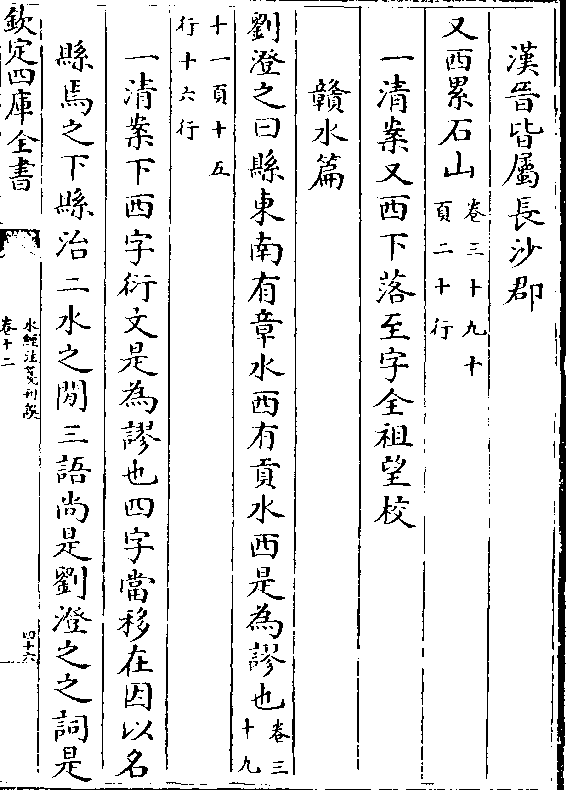 漢晉皆屬長沙郡
又西累石山卷三十九十頁二十行
一清案又西下落至字全祖望校
贛水篇
劉澄之曰縣東南有章水西有貢水西是為謬也卷三十九
十一頁十五行十六行
一清案下西字衍文是為謬也四字當移在因以名
縣焉之下縣治二水之間三語尚是劉澄之之詞是
欽定四庫全書
水經注箋刊誤
卷十二
四十六